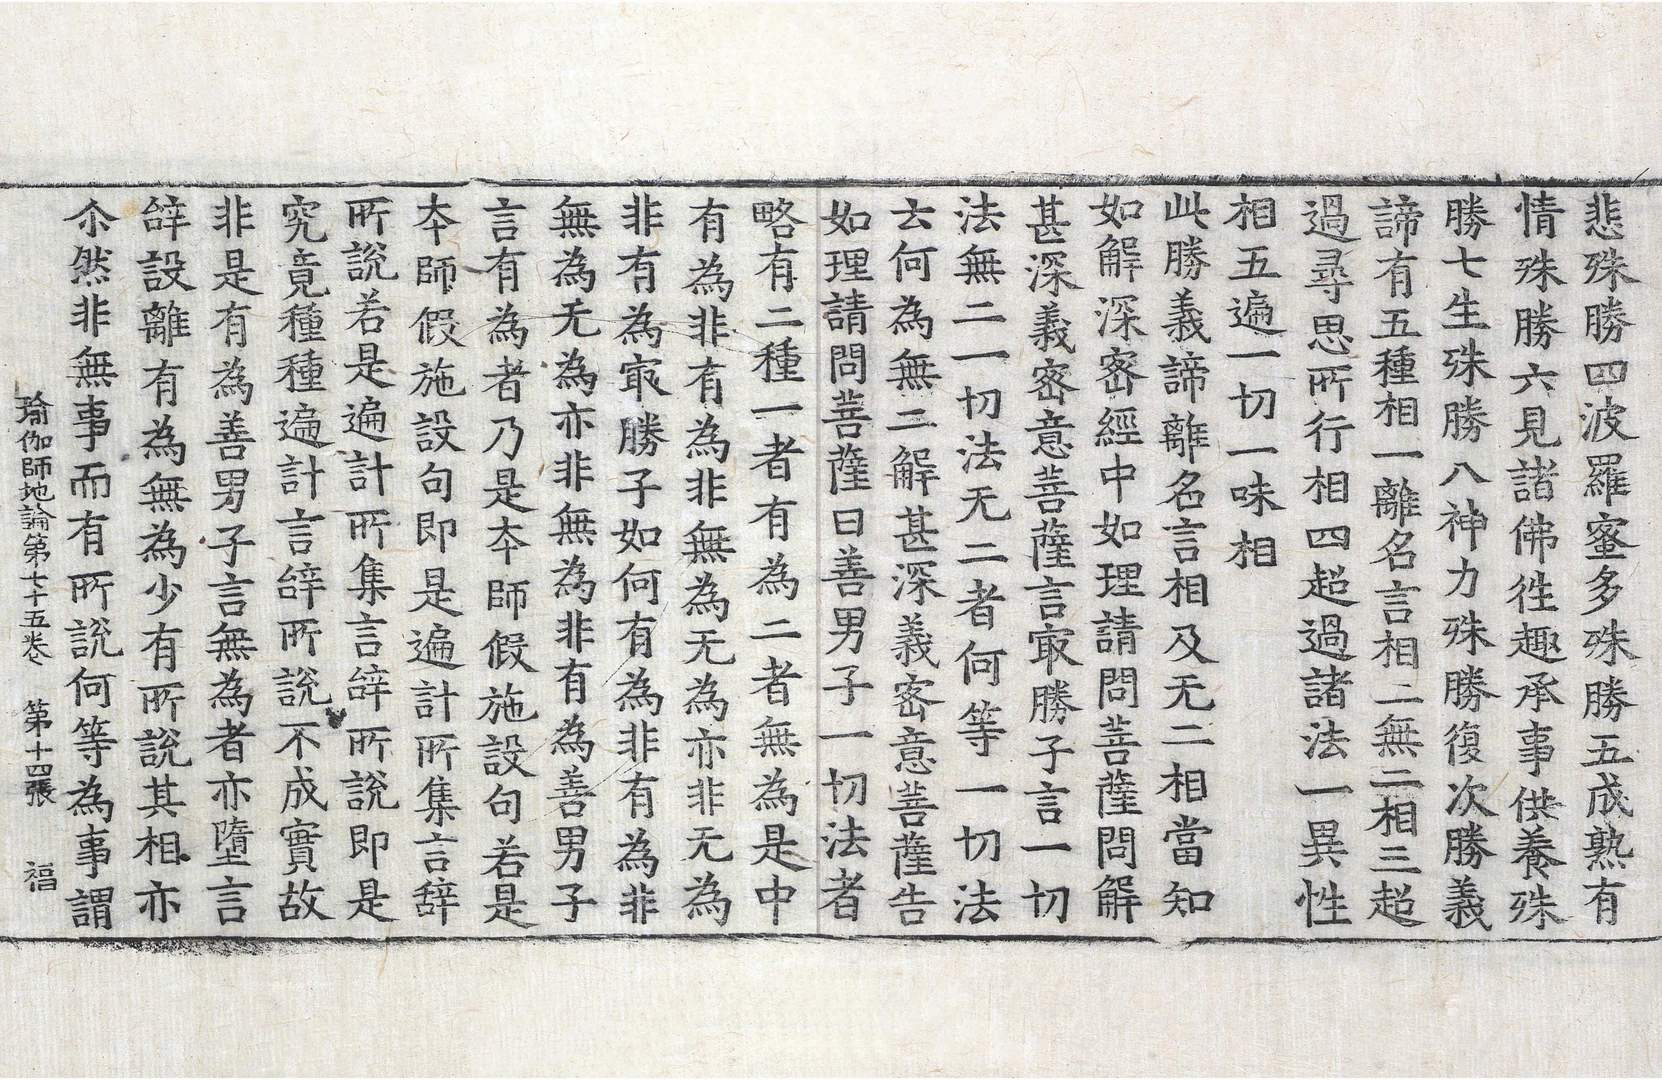 悲殊勝四波羅蜜多殊勝五成熟有
情殊勝六見諸佛徃趣承事供養殊
勝七生殊勝八神力殊勝復次勝義
諦有五種相一離名言相二無二相三超
過尋思所行相四超過諸法一異性
相五遍一切一味相
此勝義諦離名言相及无二相當知
如解深密經中如理請問菩薩問解
甚深義密意菩薩言㝡勝子言一切
法無二一切法无二者何等一切法
云何為無二解甚深義密意菩薩告
如理請問菩薩曰善男子一切法者
略有二種一者有為二者無為是中
有為非有為非無為无為亦非无為
非有為㝡勝子如何有為非有為非
無為无為亦非無為非有為善男子
言有為者乃是夲師假施設句若是
夲師假施設句即是遍計所集言辞
所說若是遍計所集言辝所說即是
究竟種種遍計言辝所說不成實故
非是有為善男子言無為者亦墮言
辝設離有為無為少有所說其相亦
尒然非無事而有所說何等為事謂
瑜伽師地論第七十五卷 第十四張 福